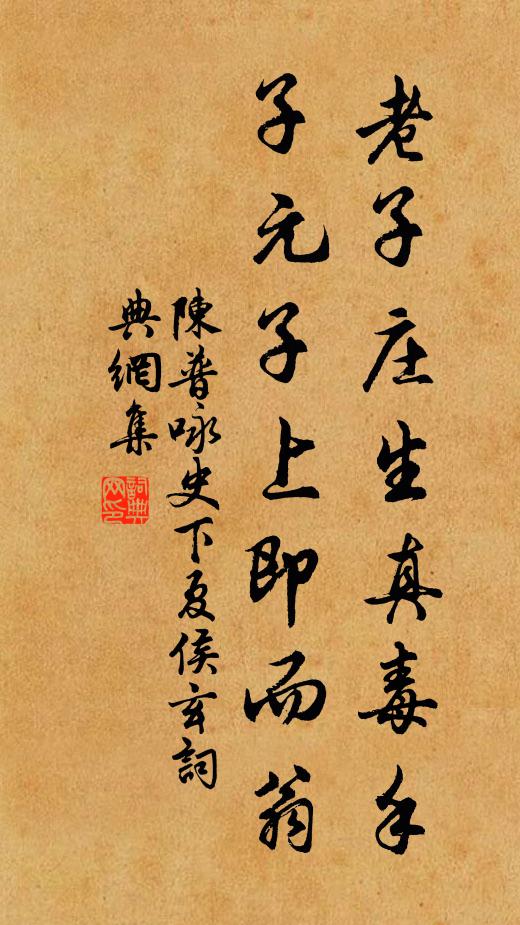 老子庄生真毒手
子元子上即而翁
陳普咏史下夏侯玄詞
典網集
詞典
网印